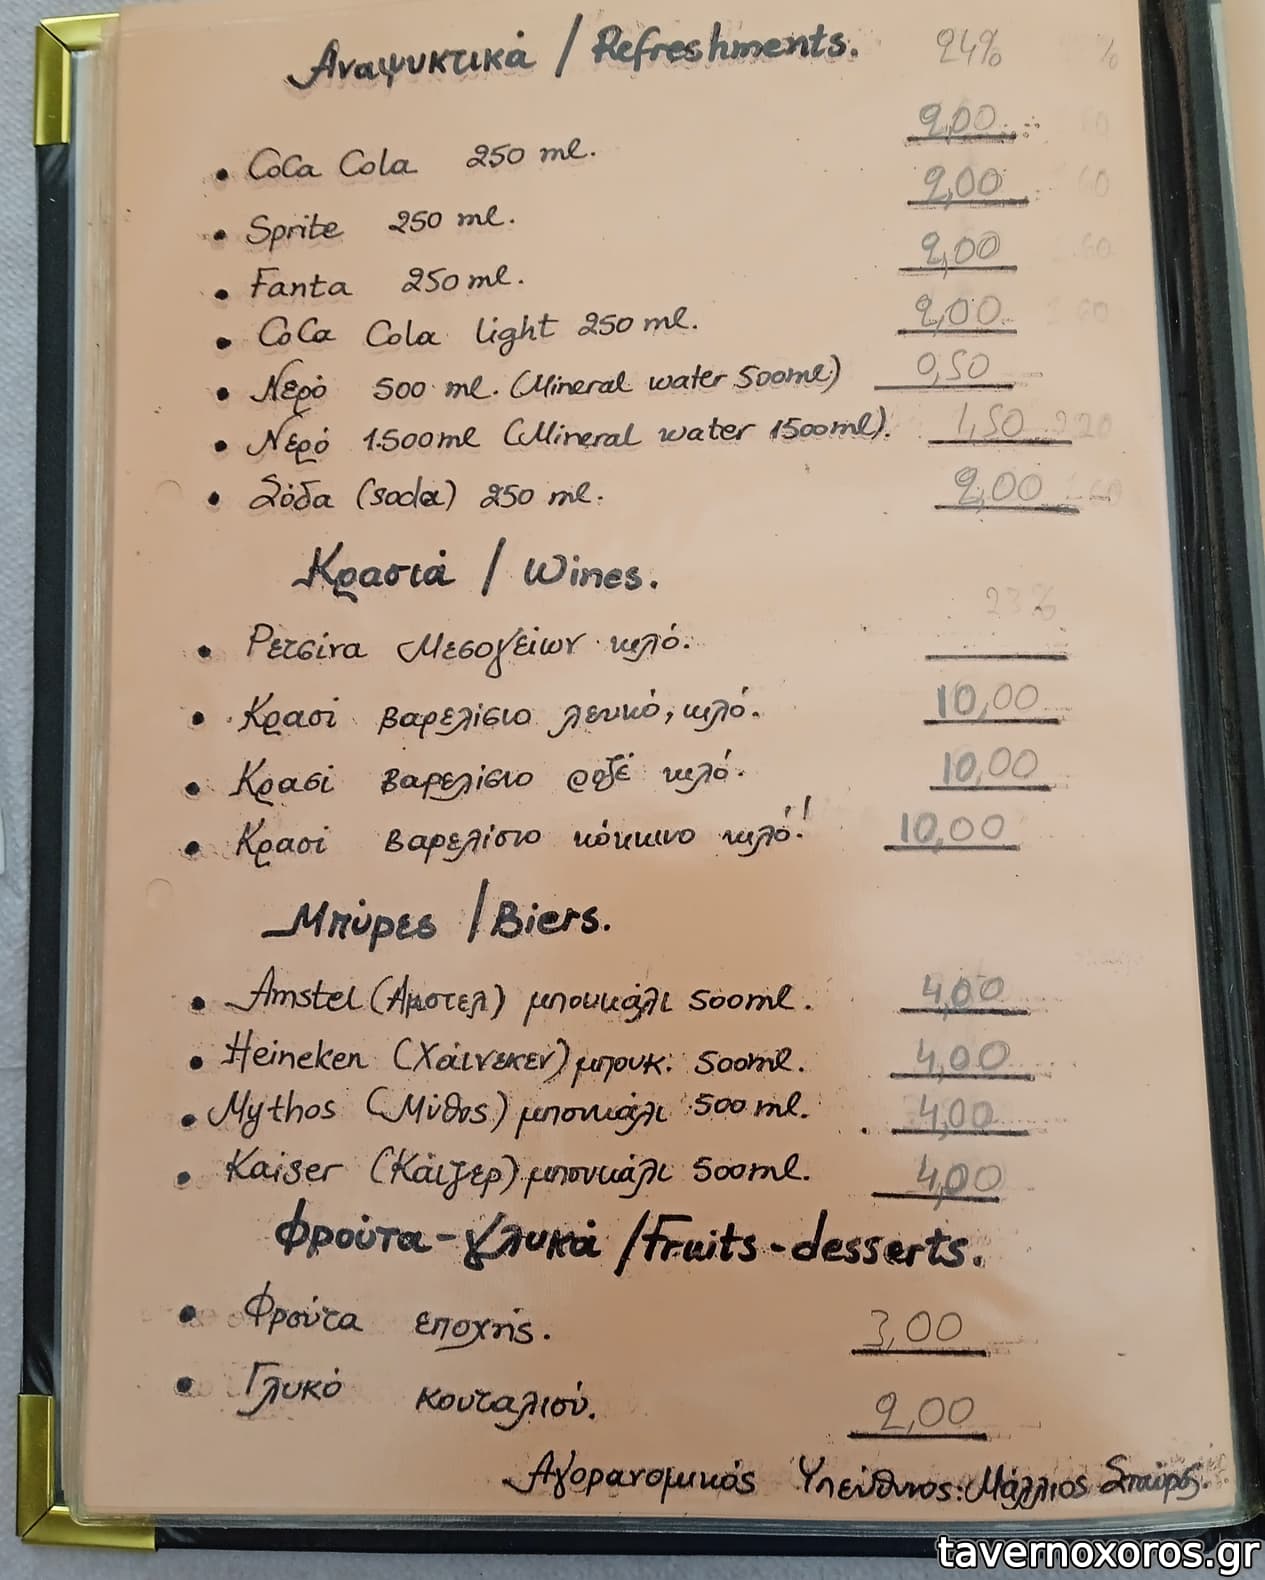 Αναψυκτικά / Refreshments. 24%
• CoCa Cola 250 ml. 2,00
• Sprite 250 ml. 2,00
• Fanta 250 ml. 2,00
• CoCa Cola light 250 ml. 2,00
• Νερό 500 ml. (Mineral water 500ml) 0,50
• Νερό 1.500ml (Mineral water 1500ml). 1,50
• Σόδα (soda) 250 ml. 2,00
Κρασιά / Wines.
23%
• Ρετσίνα Μεσογείων κιλό.
• Κρασί βαρελίσιο λευκό, κιλό. 10,00
• Κρασί βαρελίσιο ροζέ κιλό. 10,00
• Κρασί βαρελίσιο κόκκινο κιλό.! 10,00
Μπύρες / Biers.
• Amstel (Αμστελ) μπουκάλι 500ml. 4,00
• Heineken (Χάινεκεν) μπουκ. 500ml. 4,00
• Mythos (Μύθος) μπουκάλι 500 ml. 4,00
• Kaiser (Κάιζερ) μπουκάλι 500ml. 4,00
Φρούτα - γλυκά / Fruits - desserts.
• Φρούτα εποχής. 3,00
• Γλυκό κουταλιού. 2,00
Αγορανομικός Υπεύθυνος: Μάλλιος Σπύρος.
tavernoxoros.gr